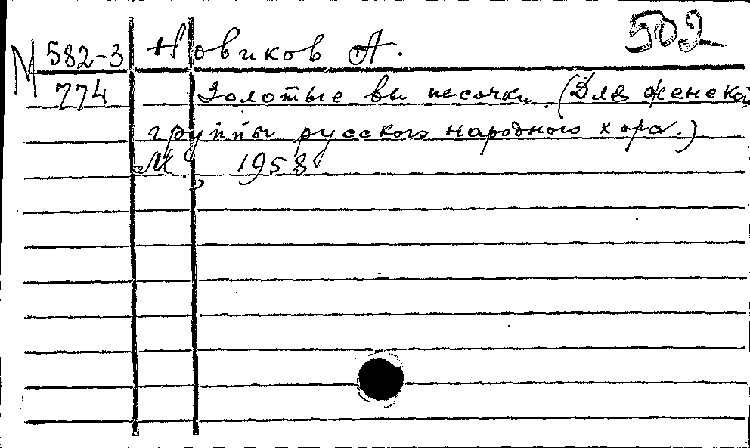 502
М 582-3 Новиков А.
774 Золотые вы песочки (Для женской
группы русского народного хора.)
М., 1958